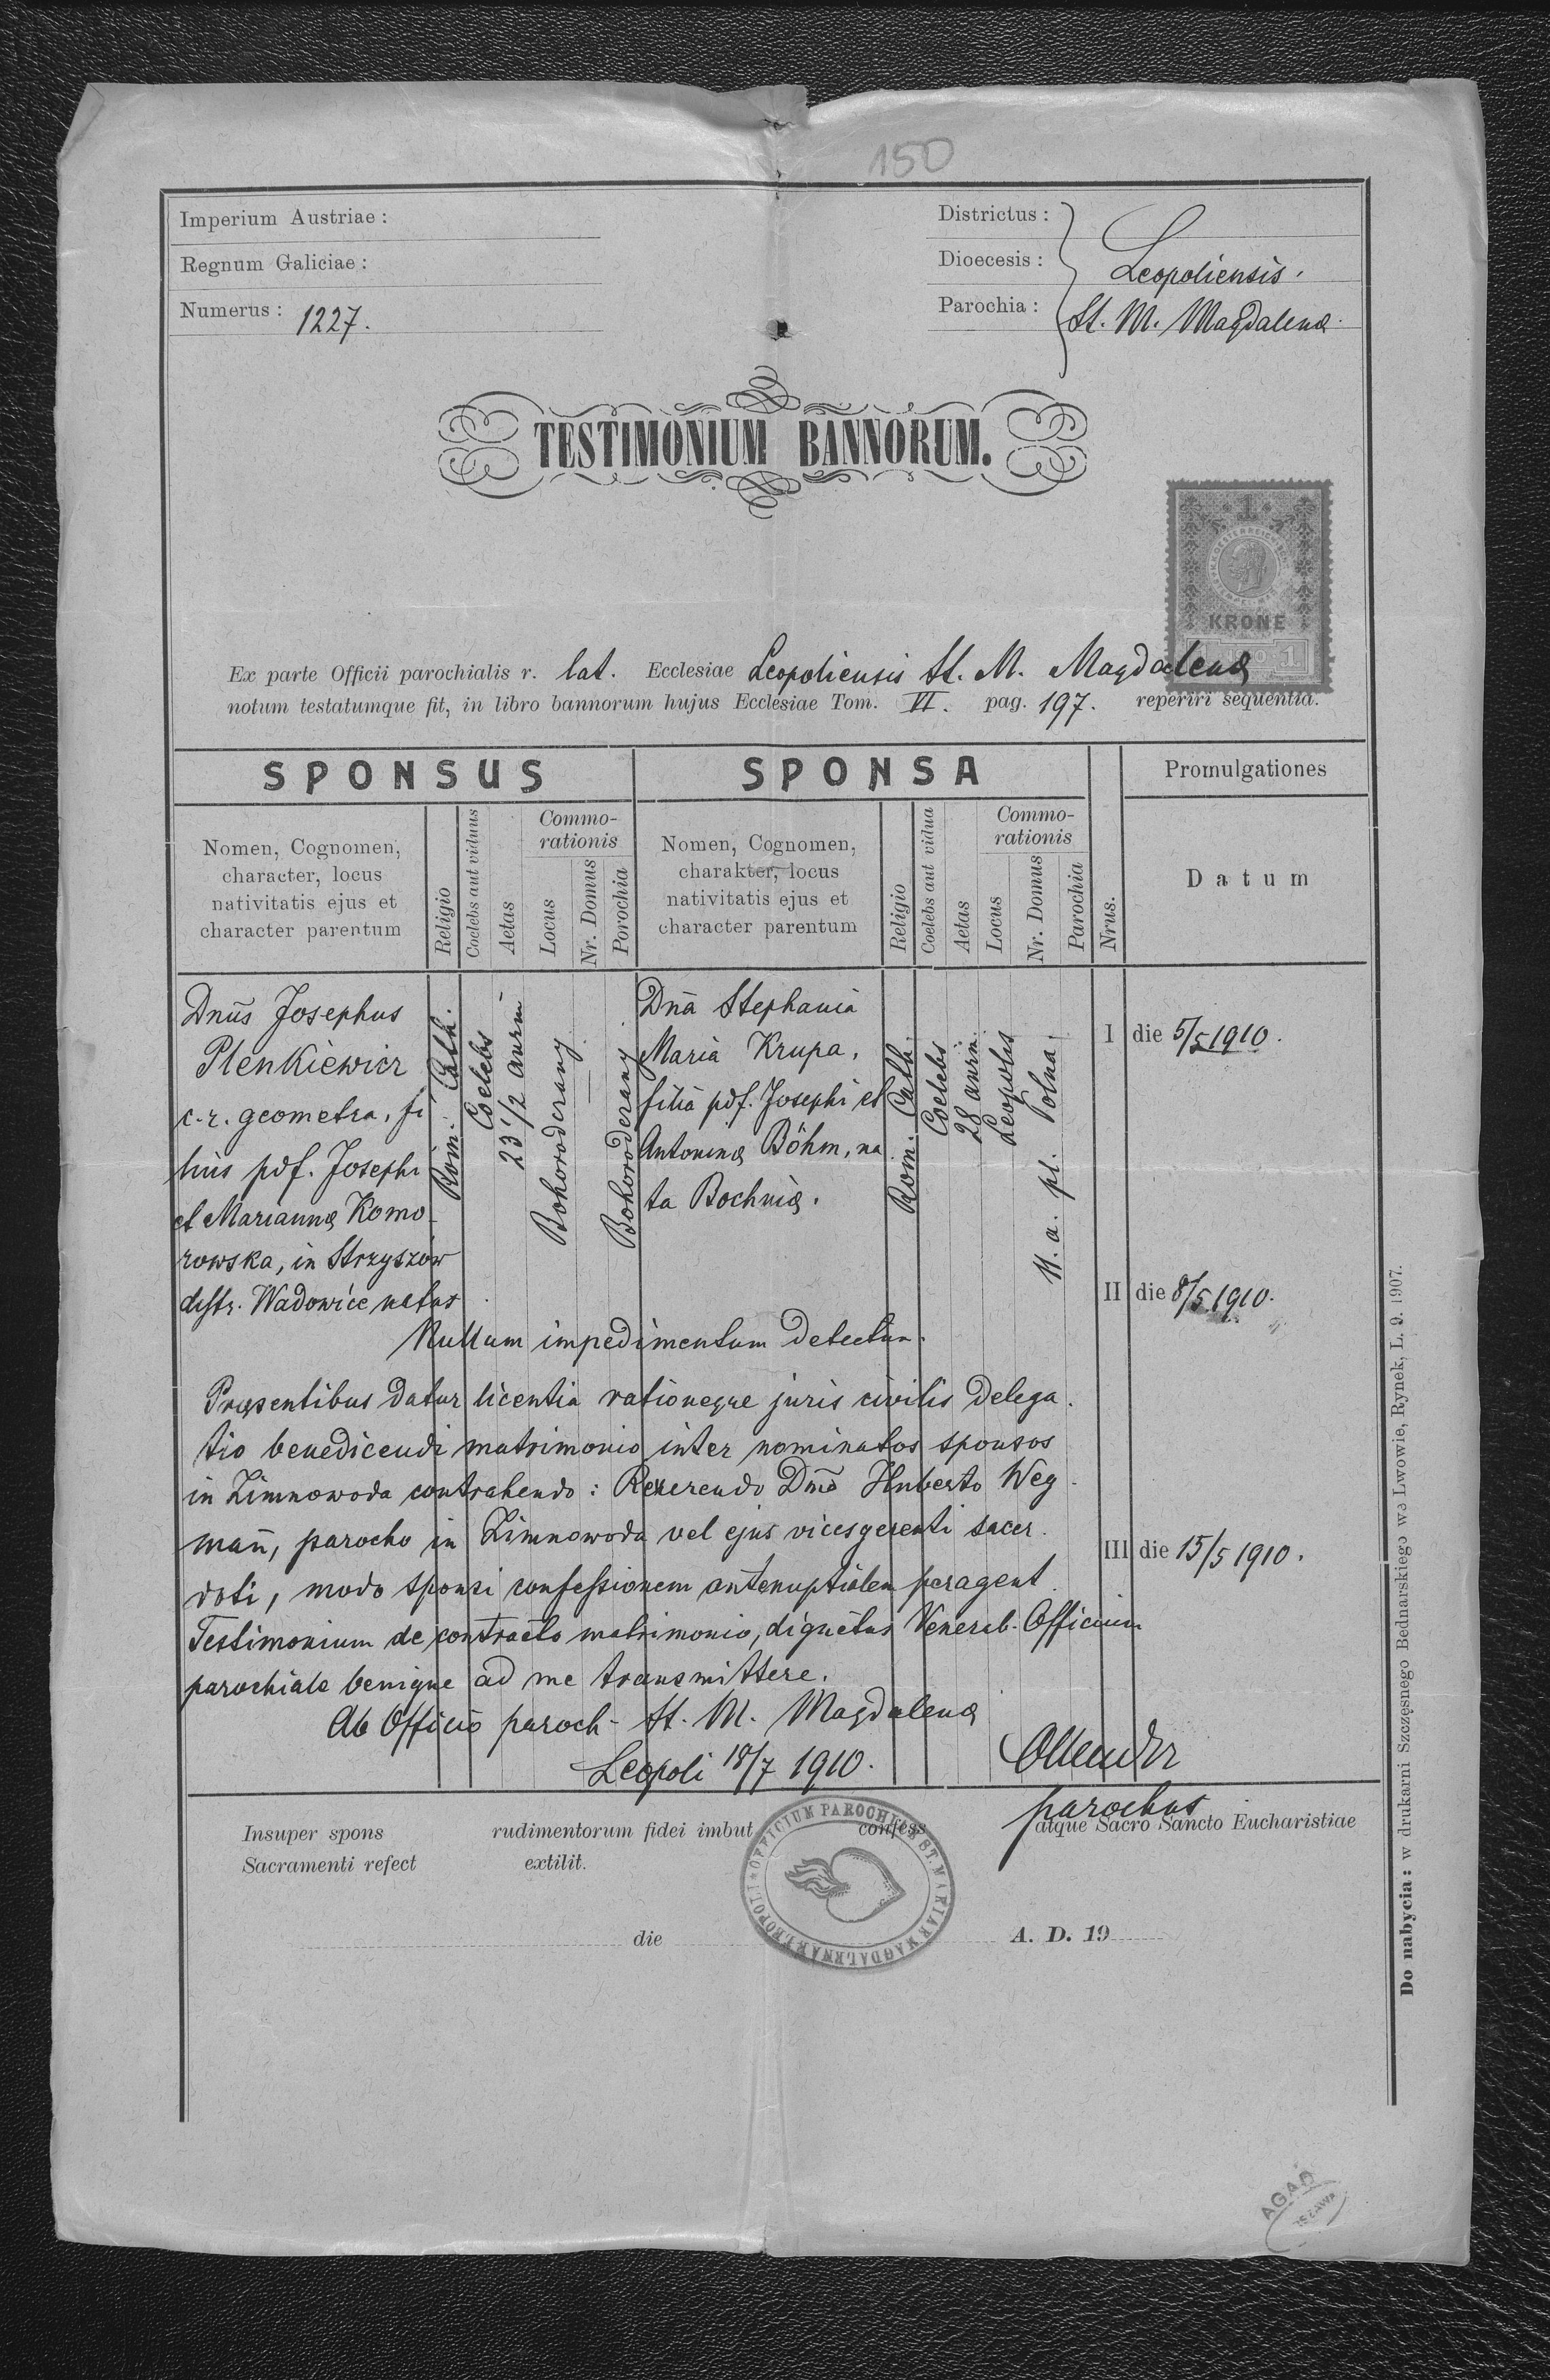 150
Imperium Austriae :
Regnum Galiciae :
Numerus : 1227.
Districtus :
Dioecesis : Leopoliensis.
Parochia : St. M. Magdalenæ.
TESTIMONIUM BANNORUM.
1
KRONE
1
Ex parte Officii parochialis r. lat. Ecclesiae Leopoliensis St. M. Magdalenæ
notum testatumque fit, in libro bannorum hujus Ecclesiae Tom. VI. pag. 197. reperiri sequentia.
SPONSUS
SPONSA
Promulgationes
Nomen, Cognomen,
character, locus
nativitatis ejus et
character parentum
Religio
Coelebs aut viduus
Aetas
Commo-
rationis
Locus
Nr. Domus
Porochia
Nomen, Cognomen,
charakter, locus
nativitatis ejus et
character parentum
Religio
Coelebs aut vidua
Aetas
Commo-
rationis
Locus
Nr. Domus
Parochia
Nrus.
Datum
Dnūs Josephus
Plenkiewicz
c.-r. geometra, fi
lius pdf. Josephi
et Mariannæ Komo-
rowska, in Strzyszów
distr. Wadowice natus
Rom. Cath.
Coelebs
23 1/2 annn
Bohorodczany.
—
Bohorodczany.
Dnā Stephania
Maria Krupa,
filia pdf. Josephi et
Antoninæ Böhm, na
ta Bochniæ.
Rom. Cath.
Coelebs
28 annn.
Leopolis
11. a. pl. Polna.
I die 5/5 1910.
II die 8/5 1910.
III die 15/5 1910.
Nullum impedimentum detectum.
Præsentibus datur licentia rationeque juris civilis delega.
tio benedicendi matrimonio inter nominatos sponsos
in Zimnowoda contrahendo : Reverendo Dn̄o Huberto Weg-
man̄, parocho in Zimnowoda vel ejus vicesgerenti sacer.
doti, modo sponsi confessionem antenuptialem peragent.
Testimonium de contracto matrimonio, dignetur Venerab. Officium
parochiale benigne ad me transmittere.
Ab Officio paroch- St. M. Magdalenæ
Leopoli 18/7 1910.
parochus
Insuper spons rudimentorum fidei imbut confess atque Sacro Sancto Eucharistiae
Sacramenti refect extilit.
die A. D. 19
OFFICIUM PAROCHIALE ST. MARIAE MAGDALENAE LEOPOLI
Do nabycia : w drukarni Szczęsnego Bednarskiego we Lwowie, Rynek, L. 9. 1907.
AGAD